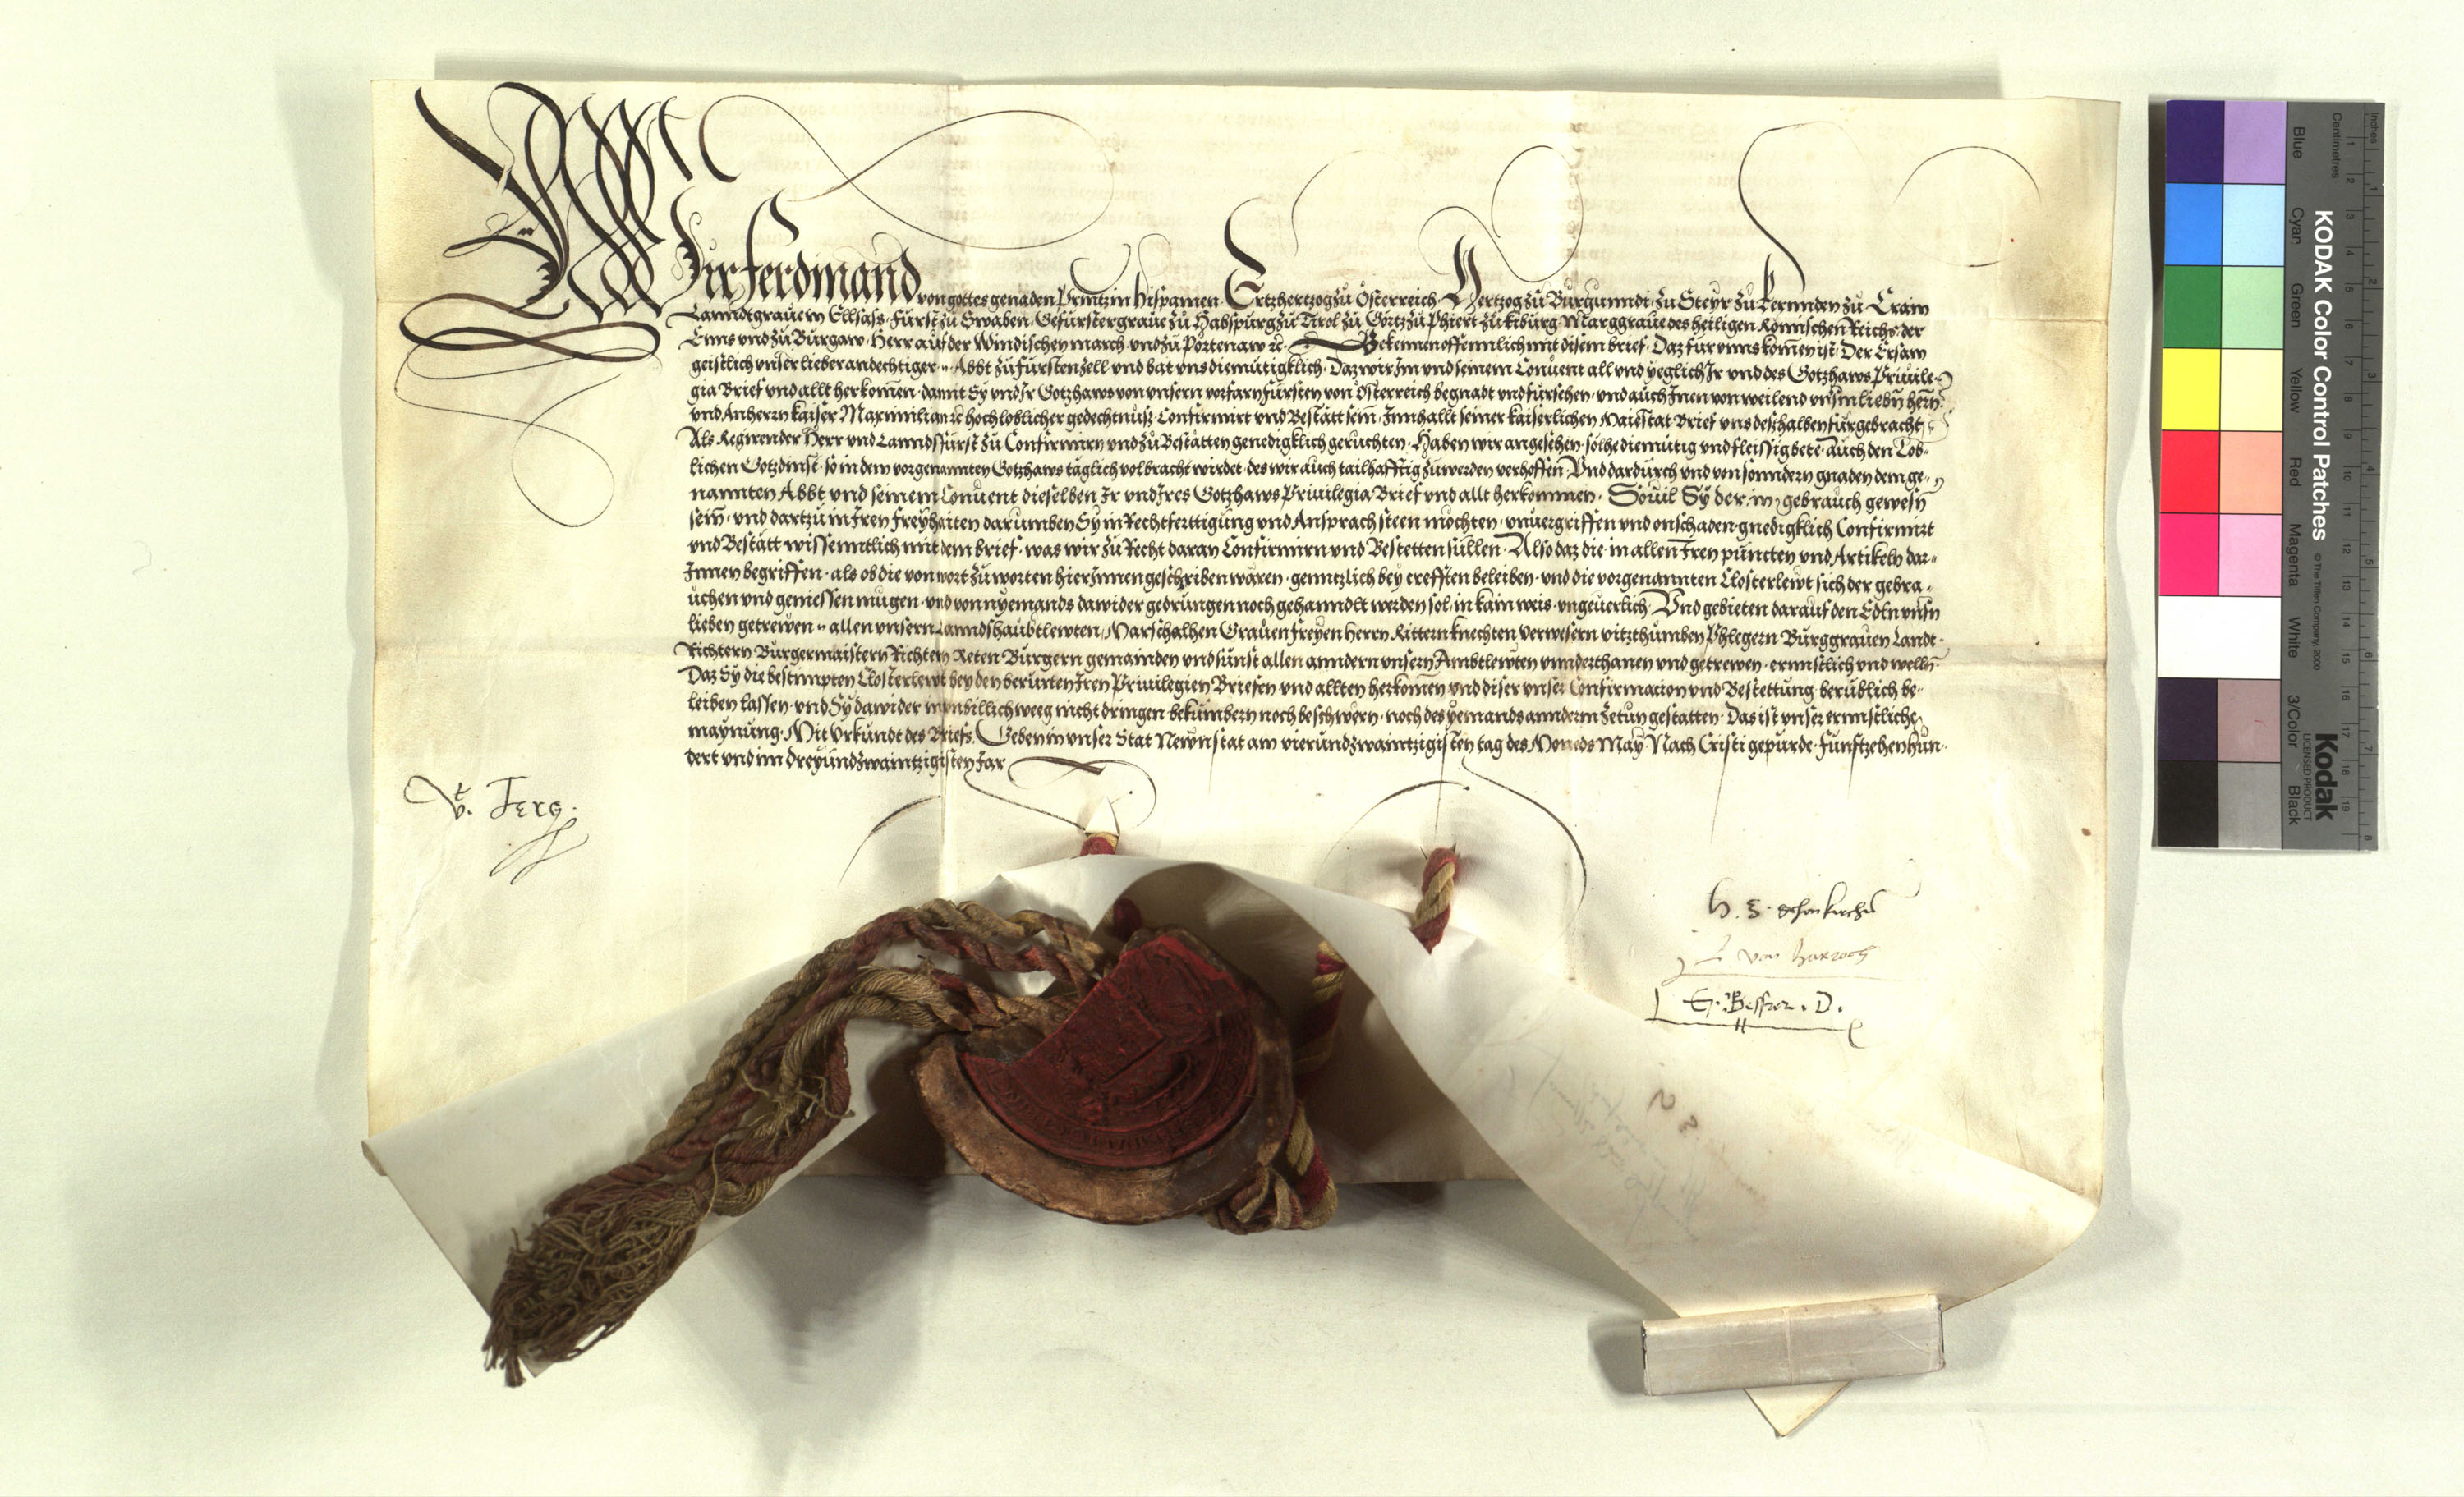 Wir Ferdinand von gottes genaden Printz in Hispanien. Ertzhertzog zů Österreich. Hertzog zů Burgunndi. zu Steyr zů Kernnden zů Crain
Lanndtgraue in Ellsass. Fürst zů Swaben. Gefürster graue zů Habspurg zů Tirol zů Gortz zů Phiert zů Kiburg Marggraue des heiligen Römischen Reichs. der
Enns vnd zů Burgaw. Herr auf der Windischen march. vnd zů Portenaw ꝛc. Bekennen offennlich mit disem brief. Daz für vnns komen ist. Der Ersam
geistlich vnser lieber andechtiger .. Abbt zů Fürstenzell vnd bat vns diemütigklich. Daz wir Im vnd seinem Conuent all vnd yeglich Ir vnd des Gotzhaws Priuile-
gia Brief vnd allt herkomen. damit Sy vnd Ir Gotzhaws von vnsern vorfarn Fürsten von Österreich begnadt vnd fürsehen. vnd auch Inen von weilend vnserm liebn herrn
vnd Anherrn kaiser Maximilian ꝛc hochloblicher gedechtnuss Confirmirt vnd Bestätt sein. Innhallt seiner kaiserlichen Maiestat Brief vns desshalben fürgebracht,
Als Regirender Herr vnd Lanndsfürst zů Confirmirn vnd zů Bestätten genedigklich geruchten. Haben wir angesehen. solhe diemütig vnd fleissig bete. auch den Lob-
lichen Gotzdinst. so in dem vorgenannten Gotzhaws täglich volbracht wirdet. des wir auch tailhafftig zů werden verhoffen. Vnd dardurch vnd von sonndern gnaden dem ge-
nannten Abbt vnd seinem Conuent dieselben Ir vnd Ires Gotzhaws Priuilegia Brief vnd allt herkommen. Souil Sy der in gebrauch gewesn
sein. vnd dartzu in Iren Freyhaiten darumben Sy in Rechtferttigung vnd Ansprach steen mochten. vnuergriffen vnd on schaden. gnedigklich Confirmirt
vnd Bestätt wissenntlich mit dem brief. was wir zů Recht daran Confirmirn vnd Bestetten süllen. Also daz die in allen Iren puncten vnd Artikeln dar-
Innen begriffen. als ob die von wort zů worten hier Innen geschriben wären. genntzlich bey crefften beleiben. vnd die vorgenannten Closterlewt sich der gebra-
uchen vnd geniessen mugen. vnd von nyemands dawider gedrungen noch gehanndlt werden sol. in kain weis. vngeuerlich. Vnd gebieten darauf den Edln vnsn
lieben getrewen .. allen vnsern Lanndshaubtlewten, Marschalhen Grauen Freyen Herrn Rittern knechten Verwesern vitzthumben Phlegern Burggrauen Landt-
Richtern Burgermaistern Richtern Reten Burgern gemainden vnd sunst allen anndern vnsern Ambtlewten vnnderthanen vnd getrewen. ernnstlich vnd welln
Daz Sy die bestimpten Closterlewt bey den berurten Iren Priuilegien Briefen vnd allten herkomen vnd diser vnser Confirmacion vnd Bestettung berublich be-
leiben lassen. vnd Sy dawider in vnbillich weeg nicht dringen bekümbern noch beschwern. noch des yemands annderm zetun gestatten. Das ist vnser ernnstliche
maynung. Mit Vrkundt des Briefs. Geben in vnser Stat Newnstat am vierundzwaintzigisten tag des Moneds May. Nach Cristi gepurde. Funftzehenhun-
dert vnd im dreyundzwaintzigisten Jar
Vt. Ferg.
von harroch
Inches
Centimetres
Blue Cyan Green Yellow Red Magenta White 3/Color Black
KODAK Color Control Patches
© The Tiffen Company, 2000
Kodak
LICENSED PRODUCT